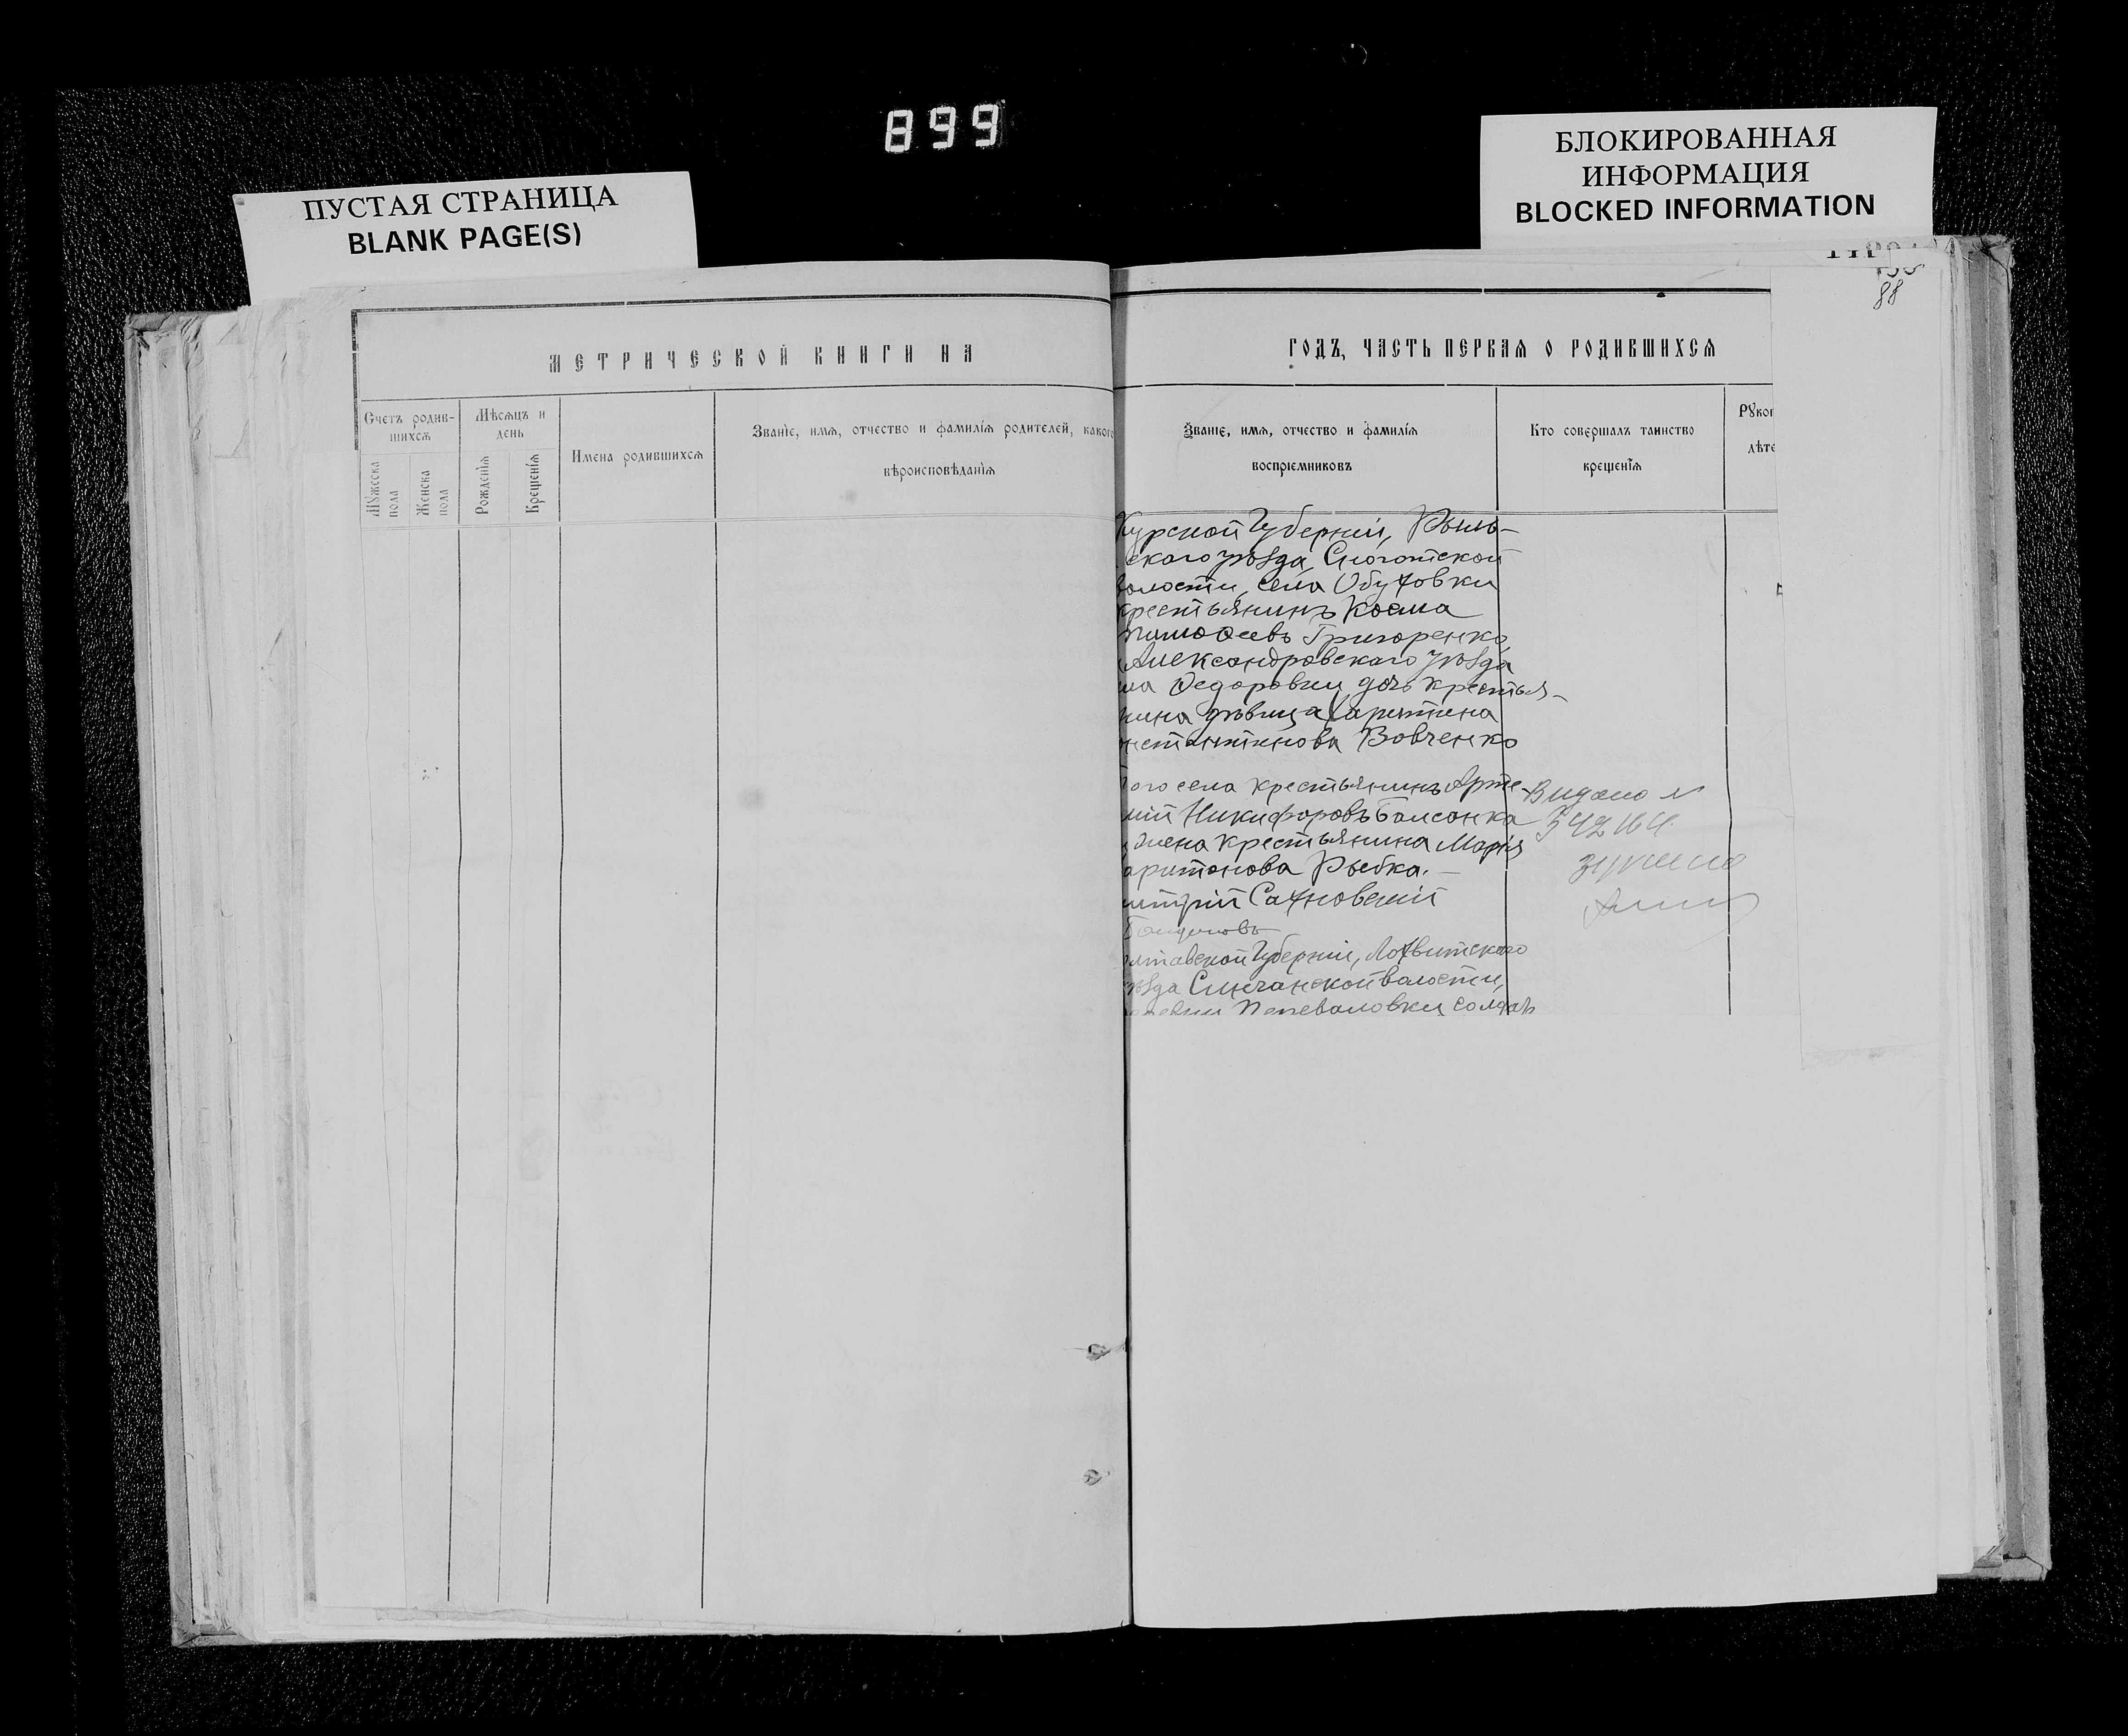 899
ПУСТАЯ СТРАНИЦА
BLANK PAGE(S)
БЛОКИРОВАННАЯ
ИНФОРМАЦИЯ
BLOCKED INFORMATION
88
МЕТРИЧЕСКОЙ КНИГИ НА
ГОДЪ, ЧАСТЬ ПЕРВАЯ О РОДИВШИХСЯ
Счетъ родив-
шихся
Мужеска
пола
Женска
пола
Мѣсяцъ и
день
Рожденія
Крещенія
Имена родившихся
Званіе, имя, отчество и фамилія родителей, какого
вѣроисповѣданія
Званіе, имя, отчество и фамилія
воспріемниковъ
Кто совершалъ таинство
крещенія
Рукоп
дѣте
Курской Губерніи, Рыль-
скаго уѣзда,
волости, села Обуховки
крестьянинъ Косма
Тимоѳеевъ Григоренко
Александровскаго уѣзда
ла Ѳедоровки дочь крестья-
нина дѣвица Харитина
онстантинова Вовченко
того села крестьянинъ Арте-
мій Никифоровъ
жена крестьянина Марія
аритонова Рыбка.
митрій Сахновскій
олтавской Губерніи, Лохвитскаго
уѣзда Сѣнчанской волости,
солдатъ
Видано